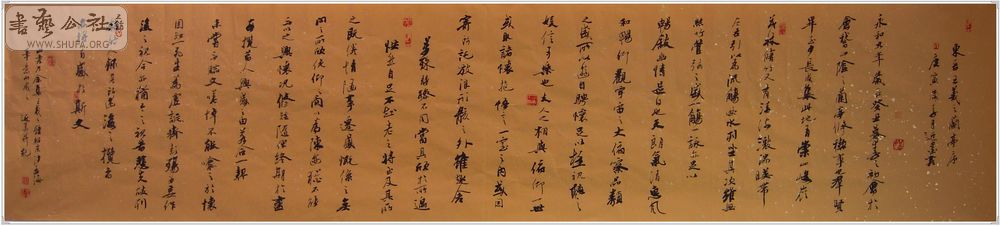 書藝公社
WWW.SHUFA.ORG
東晋王羲之蘭亭序
永和九年歲在癸丑暮春之初會於
會稽山陰之蘭亭修禊事也群賢
畢至少長咸集此地有崇山峻領
茂林脩竹又有清流激湍映帶
左右引以為流觴曲水列坐其次雖無
絲竹管弦之盛一觴一詠亦足以
暢敘幽情是日也天朗氣清惠風
和暢仰觀宇宙之大俯察品類
之盛所以遊目騁懷足以極視聽之
娛信可樂也夫人之相與俯仰一世
或取諸懷抱悟言一室之內或因
寄所託放浪形骸之外雖趣舍
萬殊靜躁不同當其欣於所遇
快然自足不知老之將至及其所
之既倦情隨事遷感慨係之矣
向之所欣俯仰之間以為陳迹猶不能
不以之興懷况脩短隨化終期於盡
每攬昔人興感之由若合一契
未嘗不臨文嗟悼不能喻之於懷
固知一死生為虛誕齊彭殤為妄作
後之視今亦猶今之視昔悲夫故列
後之攬者
有感於斯文